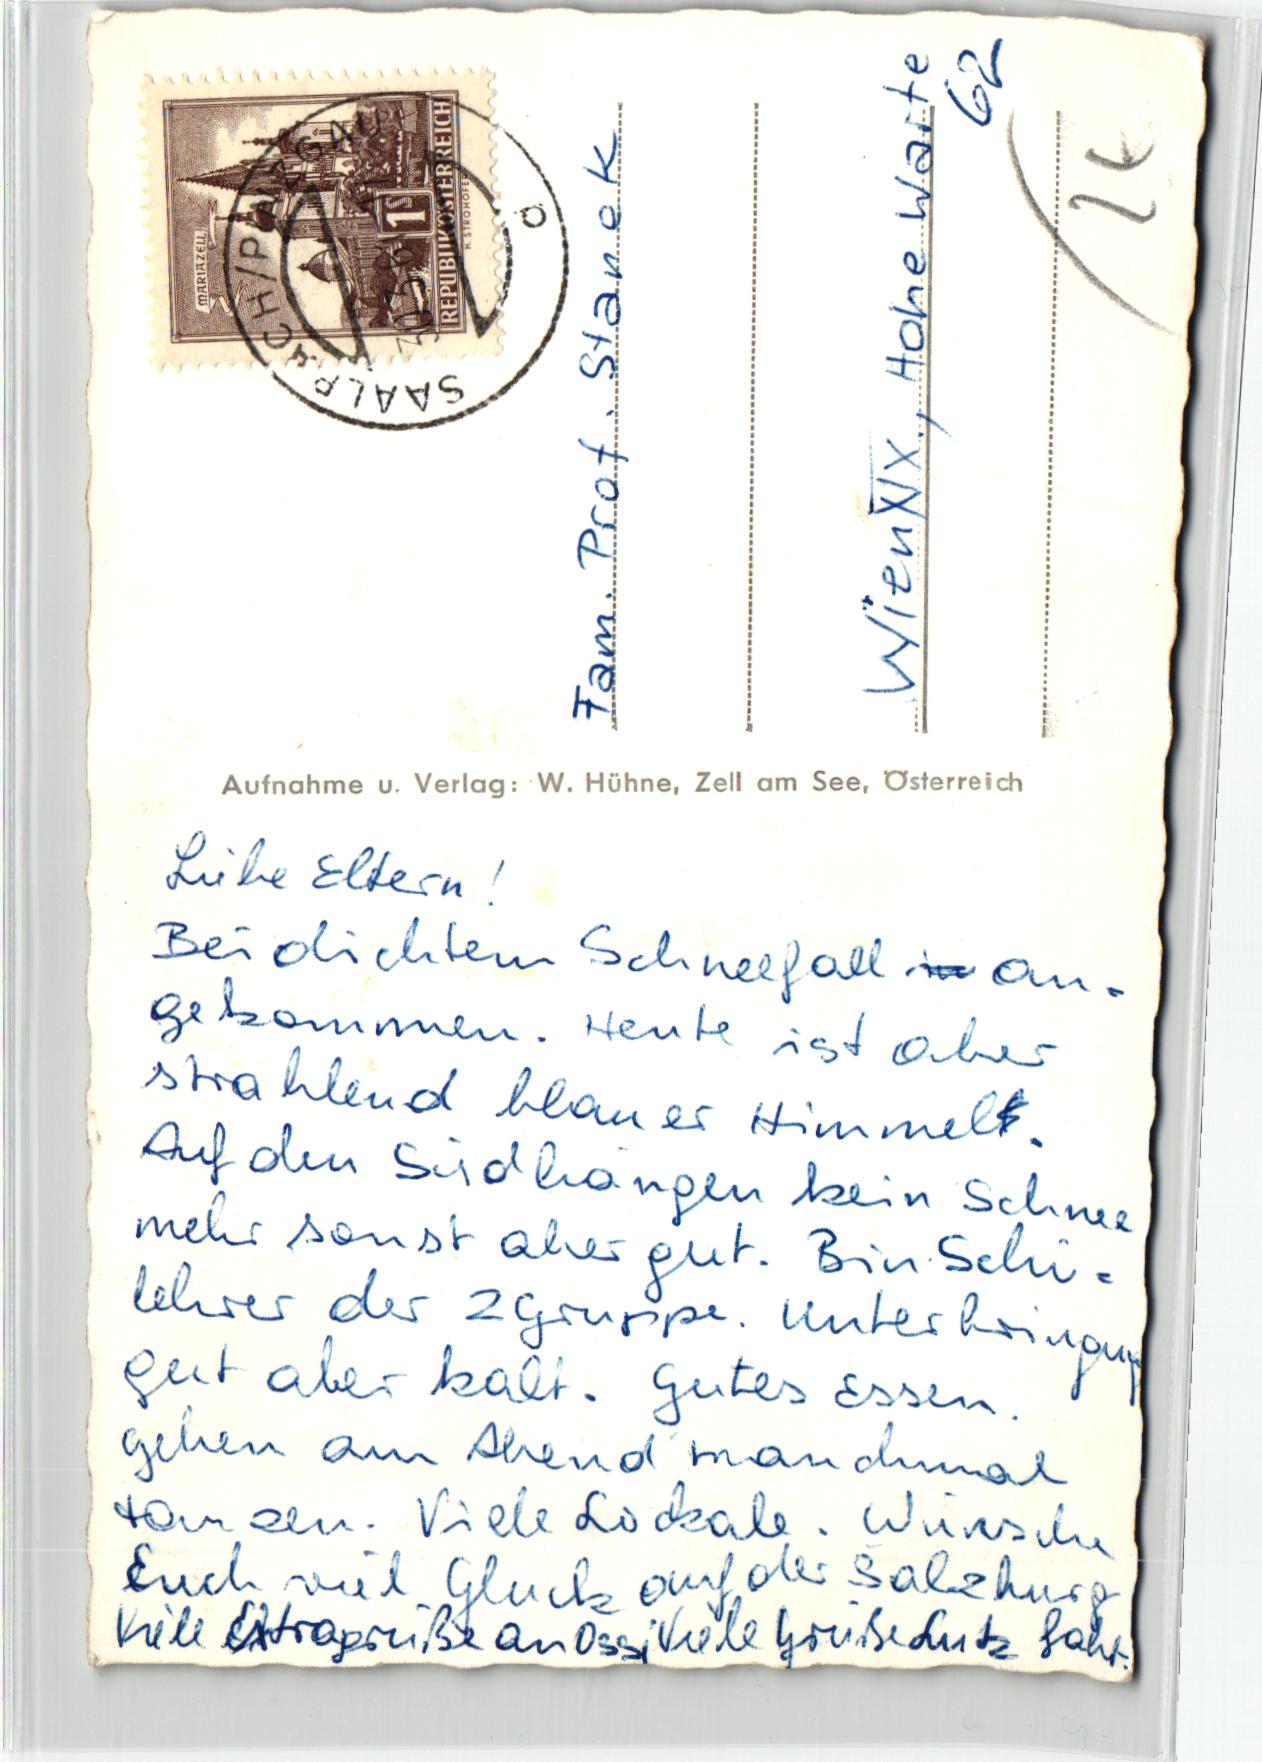 MARIAZELL
1S
REPUBLIK ÖSTERREICH
H. STROHOFER
SAALBACH/PINZGAU
30.3.61
a
Fam. Prof. Stanek
Wien XIX., Hohe Warte
62
Aufnahme u. Verlag: W. Hühne, Zell am See, Österreich
Liebe Eltern!
Bei dichtem Schneefall an-
gekommen. Heute ist aber
strahlend blauer Himmel.
Auf den Südhängen kein Schnee
mehr sonst aber gut. Bin Schi-
lehrer der 2 Gruppe. Unterbringung
gut aber kalt. Gutes Essen.
gehen am Abend manchmal
tanzen. Viele Lockale. Wünsche
Euch viel Glück auf der Salzburg
fahrt.
Viele Extragrüße an Ossi Viele Grüße Lutz